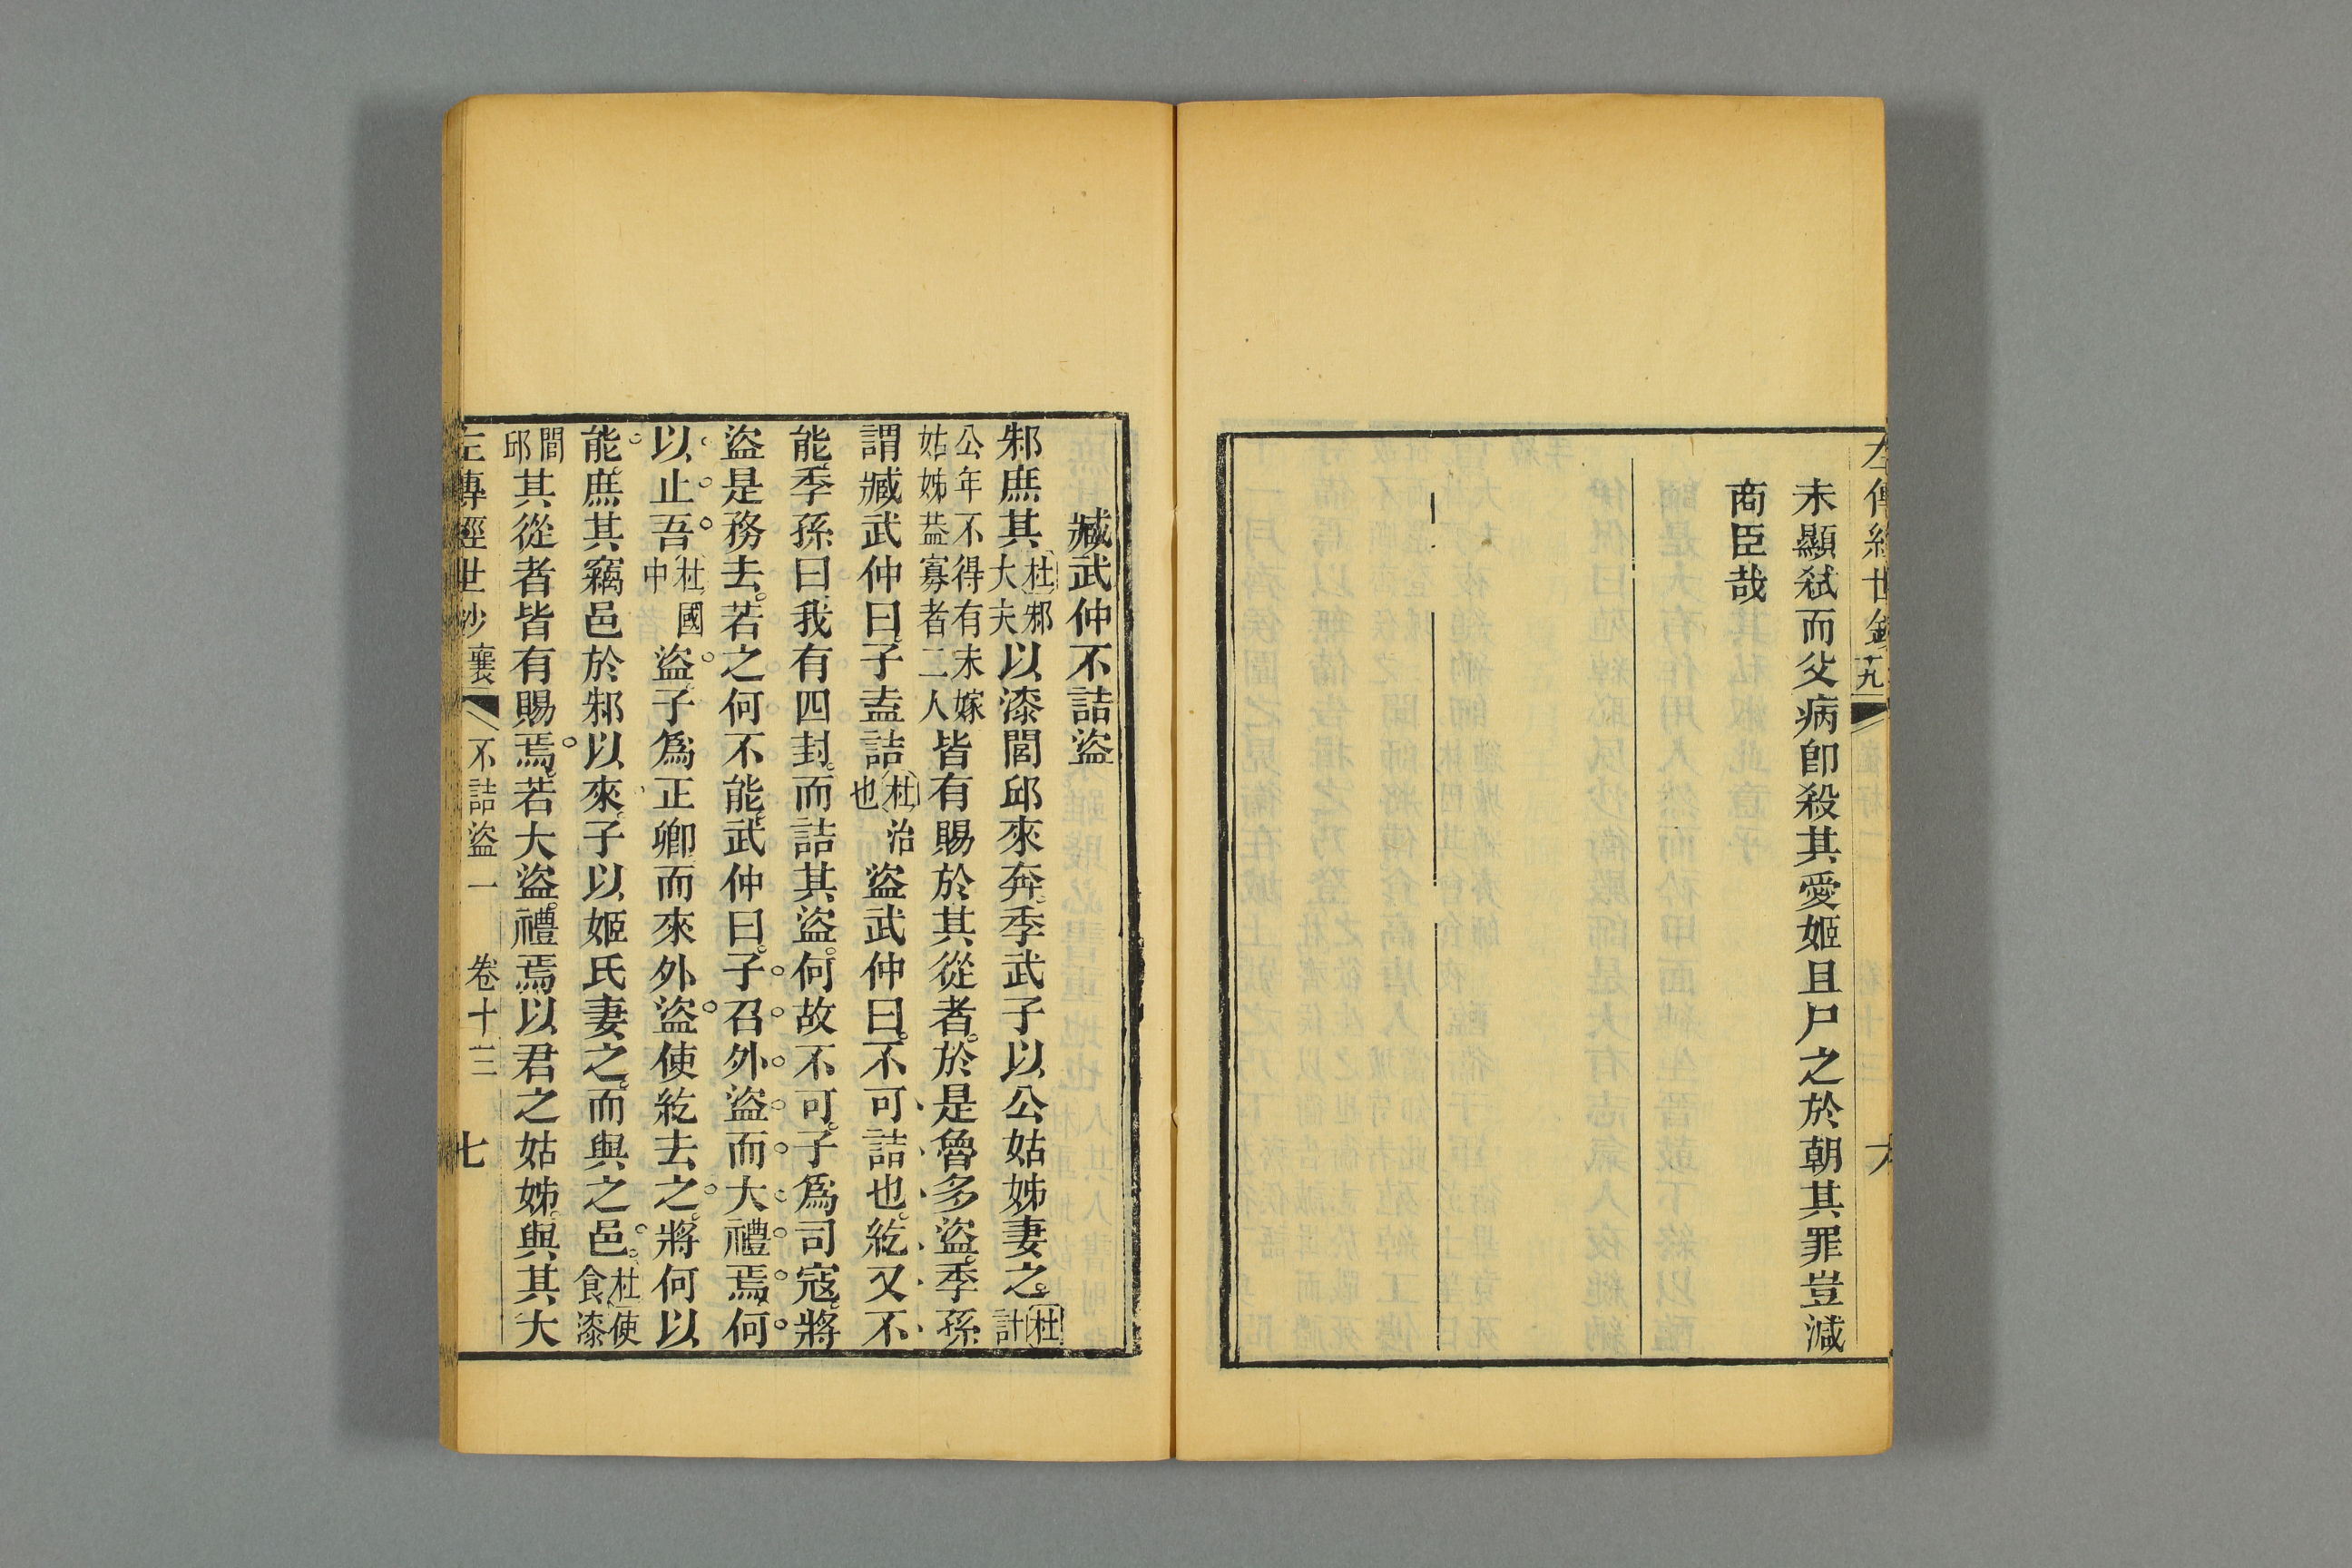 左傳經世鈔 十九 六
未顯弒而父病卽殺其愛姬且尸之於朝其罪豈減
商臣哉
臧武仲不詰盜
邾庶其杜邾大夫以漆閭邱來奔季武子以公姑姊妻之杜計
公年不得有未嫁姑姊葢寡者二人皆有賜於其從者於是魯多盜季孫
謂臧武仲曰子盍詰杜治也盜武仲曰不可詰也紇又不
能季孫曰我有四封而詰其盜何故不可子爲司寇將
盜是務去若之何不能武仲曰子召外盜而大禮焉何
以止吾杜國中盜子爲正卿而來外盜使紇去之將何以
能庶其竊邑於邾以來子以姬氏妻之而與之邑杜使食漆
閭邱其從者皆有賜焉若大盜禮焉以君之姑姊與其大
左傳經世鈔 襄 不詰盜一 卷十三 七